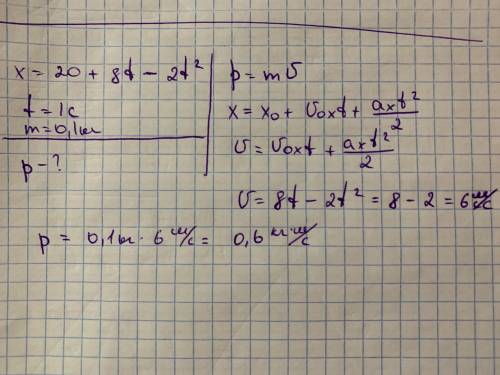 x = 20 + 8t − 2t²
t = 1с
m = 0,1кг
p − ?
p = mυ
x = x₀ + υ₀ₓt + aₓt²/2
υ = υ₀ₓt + aₓt²/2
υ = 8t − 2t² = 8 − 2 = 6 м/с
p = 0,1кг · 6 м/с = 0,6 кг м/с